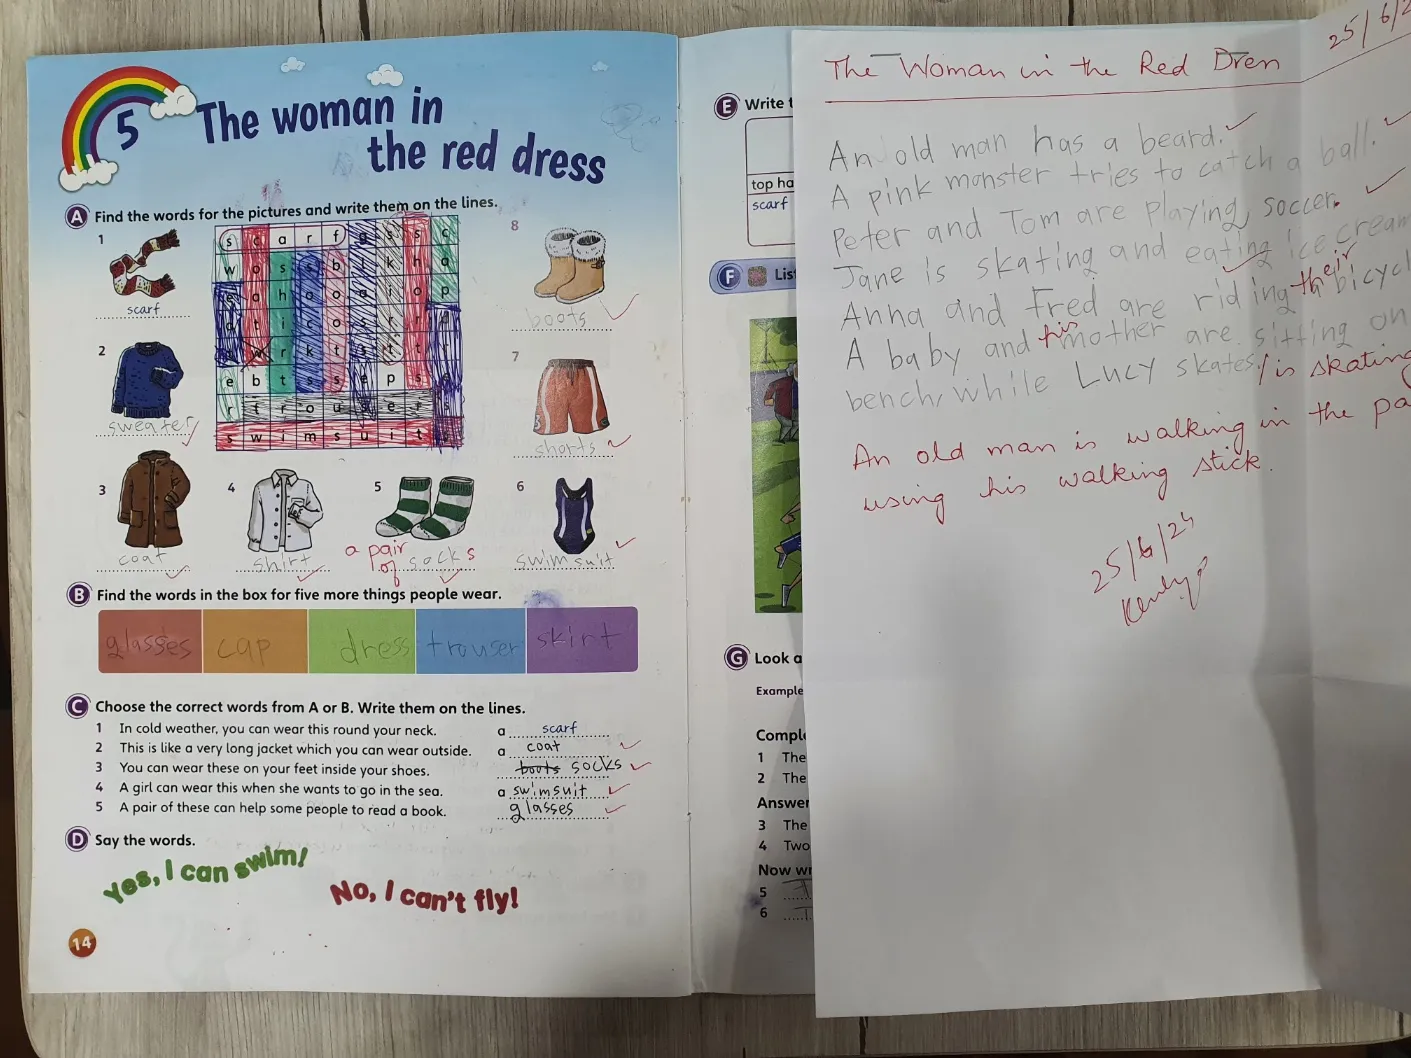 5
The woman in
the red dress
A Find the words for the pictures and write them on the lines.
1
scarf
2
sweater
3
coat
4
shirt
5
a pair
of socks
6
swimsuit
7
shorts
8
boots
s c a r f
w i m s u i t
e b t s s e p s
t r o u s e r s
B Find the words in the box for five more things people wear.
glasses cap dress trouser skirt
C Choose the correct words from A or B. Write them on the lines.
1 In cold weather, you can wear this round your neck. a scarf
2 This is like a very long jacket which you can wear outside. a coat
3 You can wear these on your feet inside your shoes. boots socks
4 A girl can wear this when she wants to go in the sea. a swimsuit
5 A pair of these can help some people to read a book. glasses
D Say the words.
Yes, I can swim!
No, I can't fly!
14
E Write
top ha
scarf
F List
G Look a
Example
Comple
1 The
2 The
Answer
3 The
4 Two
Now wr
5
6
25/6/2
The Woman in the Red Dress
An old man has a beard.
A pink monster tries to catch a ball.
Peter and Tom are playing soccer.
Jane is skating and eating ice cream
Anna and Fred are riding their bicycl
A baby and his mother are sitting on
bench, while Lucy skates / is skating
An old man is walking in the pa
using his walking stick.
25/6/24